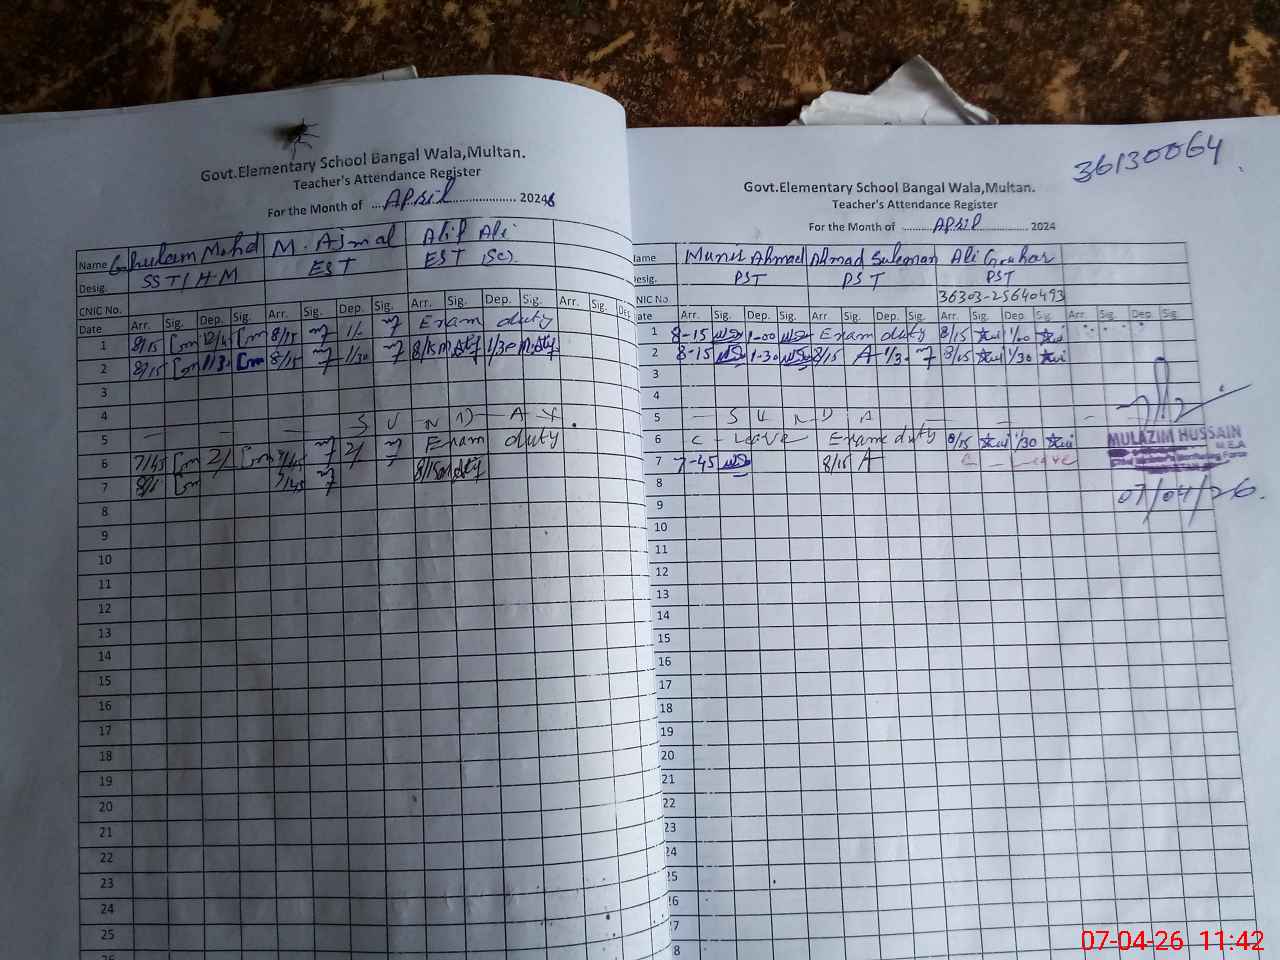 Govt.Elementary School Bangal Wala,Multan.
Teacher's Attendance Register
For the Month of ....April.................... 2026
Name Ghulam Mohd M. Ajmal Alif Ali
Desig. SST/H.M EST EST (Sc).
CNIC No.
Date Arr. Sig. Dep. Sig. Arr. Sig. Dep. Sig. Arr. Sig. Dep. Sig. Arr. Sig. Dep
1 8/15 8/15 1/ Exam duty
2 8/15 11/3 8/15 1/30 8/15 1/30
3
4
5 — — — S U N D A Y
6 7/45 2/ 7/45 2/ Exam duty
7 7/45 8/15
8
9
10
11
12
13
14
15
16
17
18
19
20
21
22
23
24
25
36130064
Govt.Elementary School Bangal Wala,Multan.
Teacher's Attendance Register
For the Month of ..........April.................. 2024
ame Munir Ahmad Ahmad Suleman Ali Gouhar
Desig. PST PST PST
CNIC No. 36303-25640493
ate Arr. Sig. Dep. Sig. Arr. Sig. Dep. Sig. Arr. Sig. Dep. Sig. Arr. Sig. Dep. Sig.
1 8-15 1-00 Exam duty 8/15 1/00
2 8-15 1-30 8/15 A 1/3. 8/15 1/30
3
4
5 — S U N D A — — —
6 C - Leave Exam duty 8/15 1/30
7 7-45 8/15 A C - Leave
8
9
10
11
12
13
14
15
16
17
18
19
20
21
22
23
24
25
26
27
28
MULAZIM HUSSAIN
M.E.A
07/04/26.
07-04-26 11:42